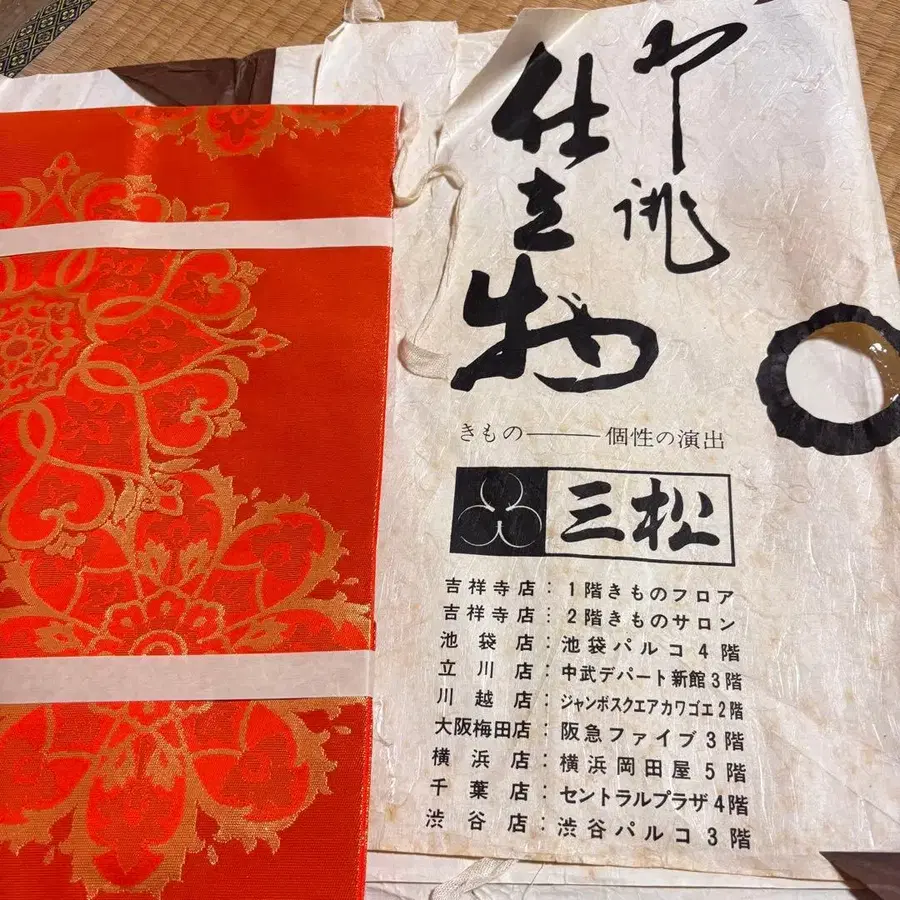 御誂
仕立物
きもの――個性の演出
三松
吉祥寺店：1階きものフロア
吉祥寺店：2階きものサロン
池袋店：池袋パルコ4階
立川店：中武デパート新館3階
川越店：ジャンボスクエアカワゴエ2階
大阪梅田店：阪急ファイブ3階
横浜店：横浜岡田屋5階
千葉店：セントラルプラザ4階
渋谷店：渋谷パルコ3階